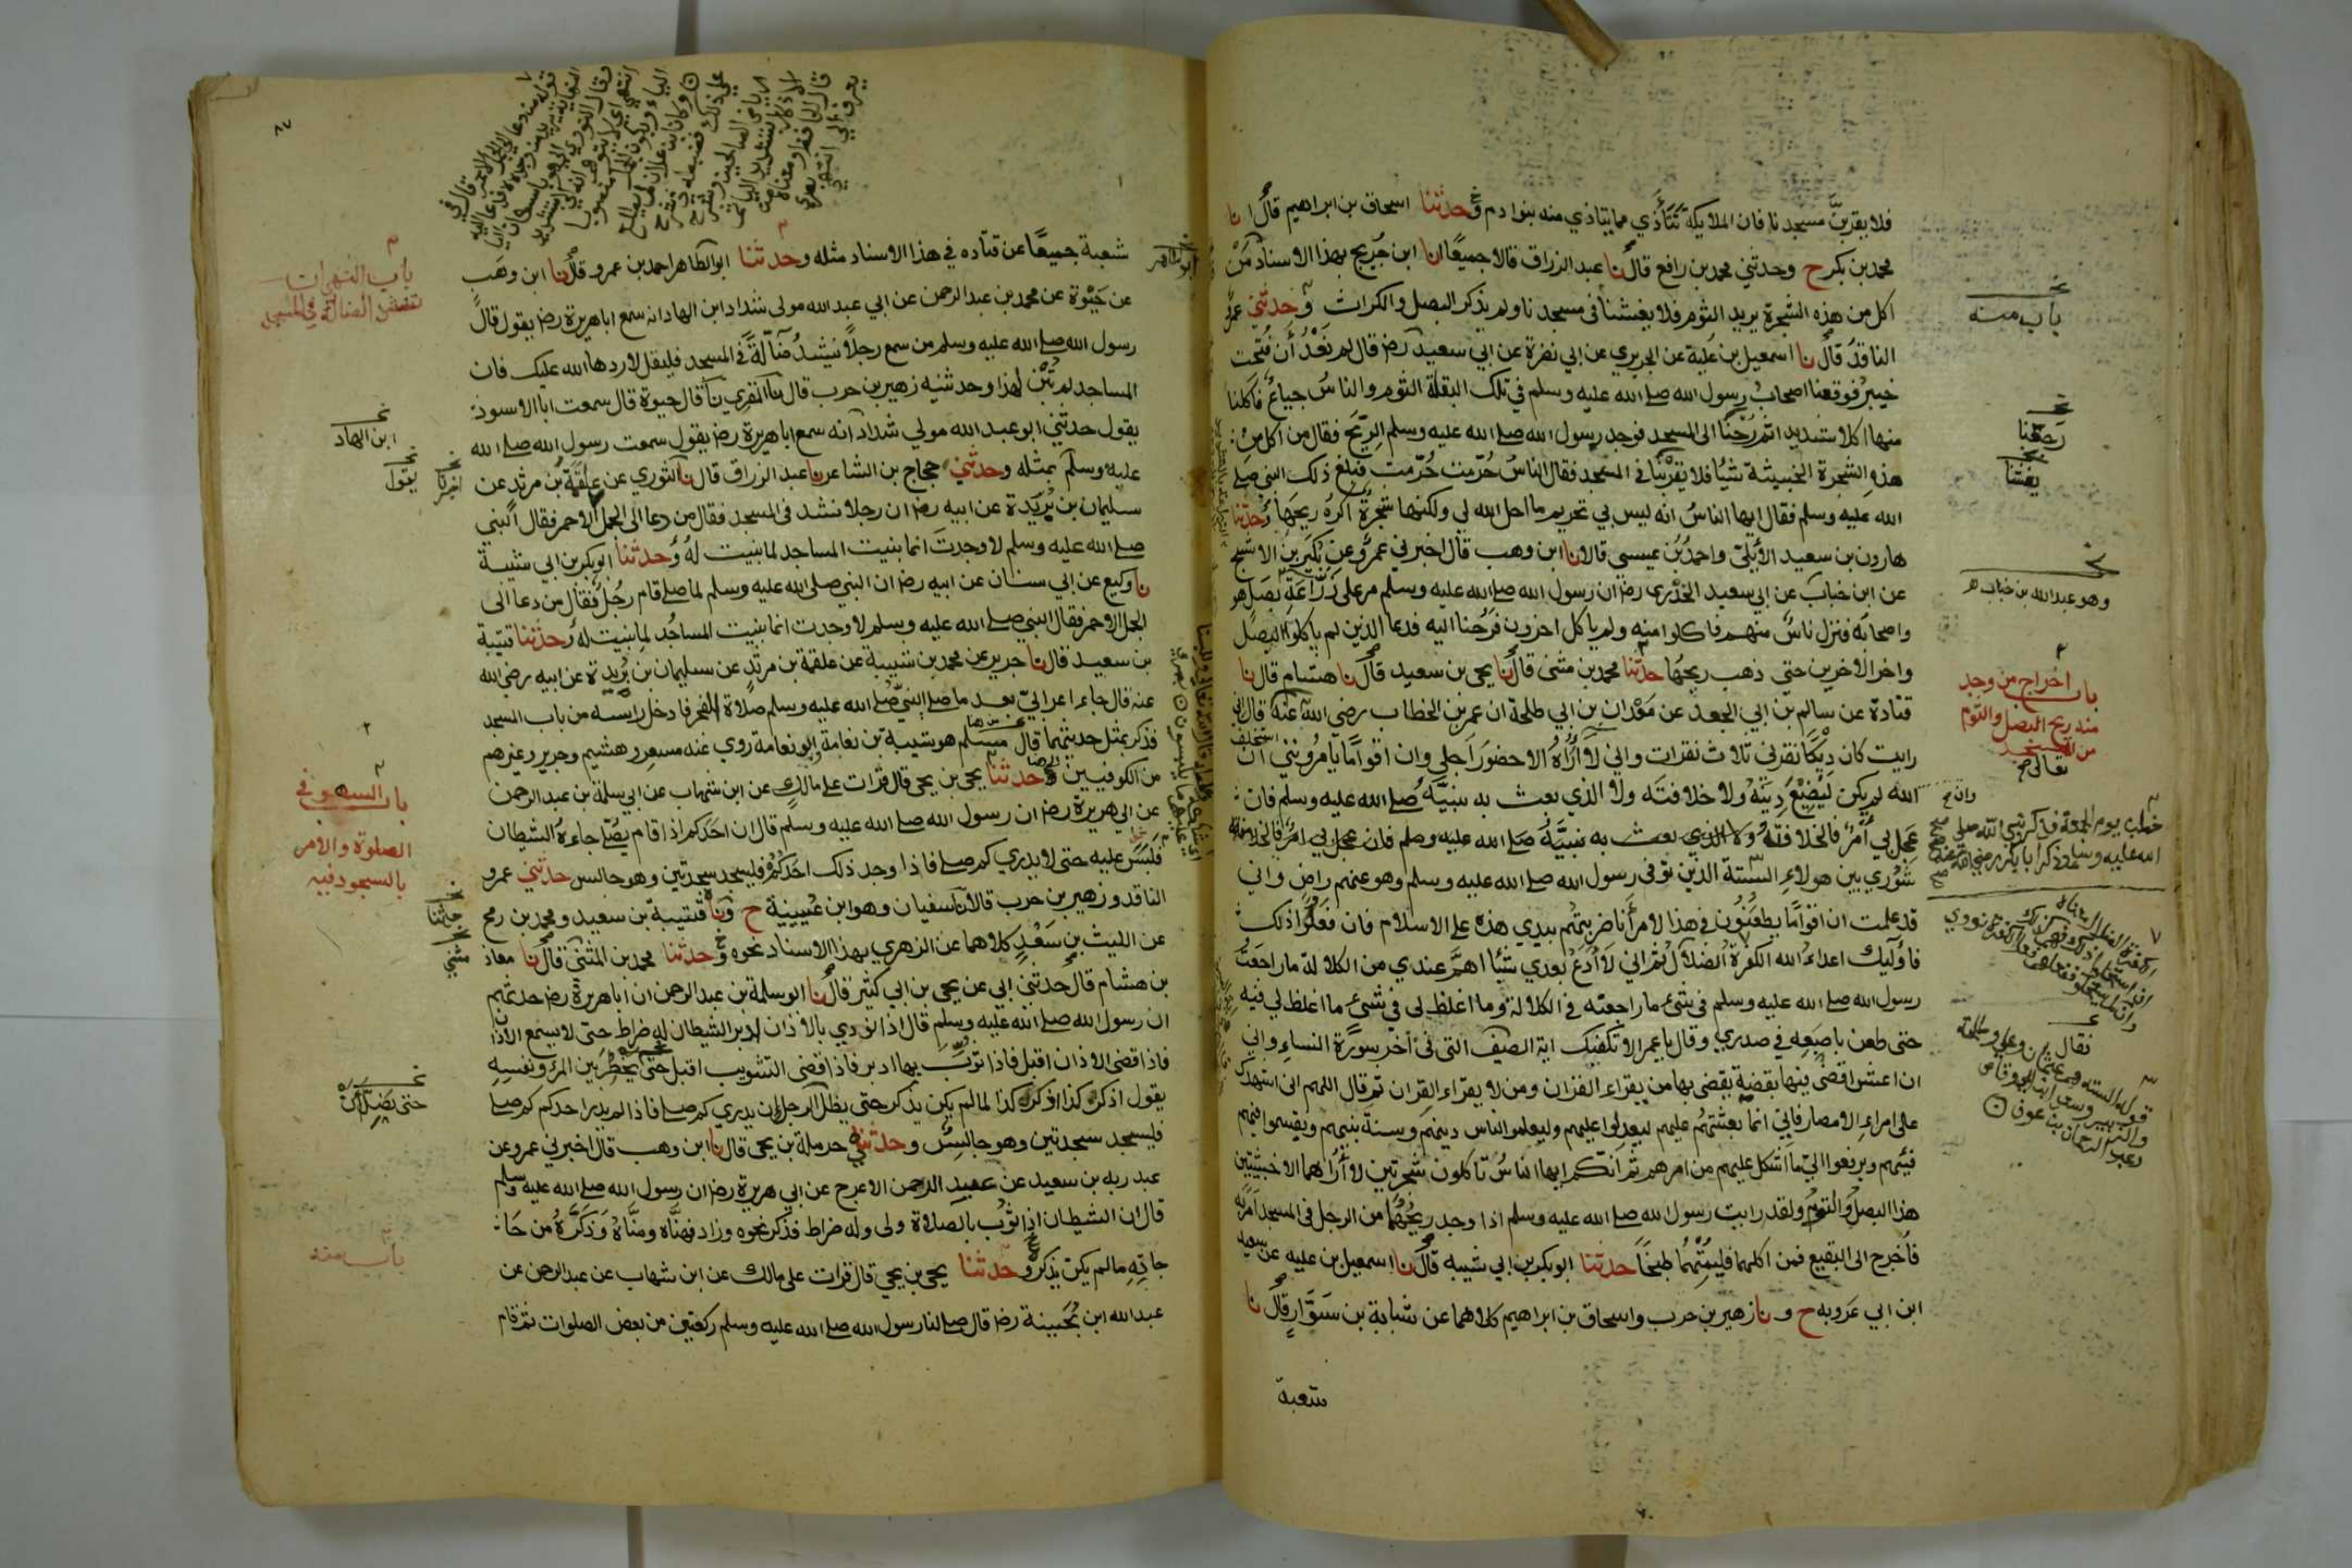 فلا يقربنّ مسجدنا فان الملايكة تتأذي مما يتاذي منه بنوادم وحدثنا اسحاق بن ابراهيم قال انا
محمد بن بكر ح وحدثني محمد بن رافع قال نا عبد الرزاق قالا جميعًا انا ابن جريج بهذا الاسناد من
اكل من هذه الشجرة يريد الثوم فلا يغشنا في مسجدنا ولم يذكر البصل والكراث وحدثني عمرو
الناقد قال نا اسمعيل بن علية عن الجريري عن ابي نضرة عن ابي سعيد رضـ قال لم نعد أن فتحت
خيبر فوقعنا اصحاب رسول الله صلے الله عليه وسلم في تلك البقلة الثوم والناس جياع فاكلنا
منها اكلا شديدا ثم رحنا الى المسجد فوجد رسول الله صلے الله عليه وسلم الريح فقال من اكل من
هذه الشجرة الخبيثة شيًا فلا يقربنا في المسجد فقال الناس حرمت حرمت فبلغ ذلك النبي صلے
الله عليه وسلم فقال ايها الناس انه ليس بي تحريم ما احل الله لي ولكنها شجرة اكره ريحها وحدثنا
هارون بن سعيد الأيلي واحمد بن عيسي قالا نا ابن وهب قال اخبرني عمرو عن بكير بن الاشج
عن ابن خباب عن ابي سعيد الخدري رضـ ان رسول الله صلے الله عليه وسلم مر على زراعة بصل هو
واصحابه فنزل ناس منهم فاكلوا منه ولم ياكل اخرون فرحنا اليه فدعا الذين لم ياكلوا البصل
واخر الاخرين حتى ذهب ريحها حدثنا محمد بن مثنى قال نا يحيى بن سعيد قال نا هشام قال نا
قتادة عن سالم بن ابي الجعد عن معدان بن ابي طلحة ان عمر بن الخطاب رضي الله عنه قال اني
رايت كان ديكا نقرني ثلاث نقرات واني لا أراه الا حضور اجلي وان اقوامًا يامرونني ان استخلف
الله لم يكن ليضيع دينه ولا خلافته ولا الذي بعث به نبيّه صلے الله عليه وسلم فان
عجل بي أمر فالخلافة ولا الذي بعث به نبيّه صلے الله عليه وسلم فان عجل بي امر فالخلافة
شوري بين هولاء الستة الذين توفى رسول الله صلے الله عليه وسلم وهو عنهم راض واني
قد علمت ان اقوامًا يطعنون في هذا لامر أنا ضربتهم بيدي هذه على الاسلام فان فعلوا ذلك
فاوليك اعداء الله الكفرة الضلال ثم اني لا أدع بعدي شيًا اهم عندي من الكلالة ما راجعت
رسول الله صلے الله عليه وسلم في شئ ما راجعته في الكلالة وما اغلظ لي في شئ ما اغلظ لي فيه
حتى طعن باصبعه في صدري وقال يا عمر الا تكفيك اية الصيف التي في أخر سورة النساء واني
ان اعش اقض فيها بقضية يقضى بها من يقراء القران ومن لا يقراء القران ثم قال اللهم اني اشهدك
على امراء الامصار فاني انما بعثتهم عليهم ليعدلوا عليهم وليعلموا الناس دينهم وسنة نبيهم ويقسموا فيهم
فيئهم ويرفعوا الي ما اشكل عليهم من امرهم ثم انكم ايها الناس تاكلون شجرتين لا أراهما الا خبيثتين
هذا البصل والثوم ولقد رايت رسول الله صلے الله عليه وسلم اذا وجد ريحهما من الرجل في المسجد أمر به
فأخرج الى البقيع فمن اكلهما فليمتهما طبخًا حدثنا ابو بكر بن ابي شيبه قال نا اسمعيل بن عليه عن سعيد
ابن ابي عروبه ح و نا زهير بن حرب واسحاق بن ابراهيم كلاهما عن شبابة بن سوار قال نا
شعبة
باب منه
يغشنا
وهو عبد الله بن خباب
باب اخراج من وجد
منه ريح البصل والثوم
من المسجد
تعالى
خطب يوم الجمعة فذكر نبي الله صلى
الله عليه وسلم وذكر ابا بكر رضي الله عنه
شعبة جميعًا عن قتاده في هذا الاسناد مثله وحدثنا ابو الطاهر احمد بن عمرو قال نا ابن وهب
عن حيوة عن محمد بن عبد الرحمن عن ابي عبد الله مولى شداد ابن الهاد انه سمع ابا هريرة رضـ يقول قال
رسول الله صلے الله عليه وسلم من سمع رجلًا ينشد ضالة في المسجد فليقل لا ردها الله عليك فان
المساجد لم تبن لهذا وحدثنيه زهير بن حرب قال نا المقري نا قال حيوة قال سمعت ابا الاسود
يقول حدثني ابو عبد الله مولي شداد انه سمع ابا هريرة رضـ يقول سمعت رسول الله صلے الله
عليه وسلم بمثله وحدثني حجاج بن الشاعر نا عبد الرزاق قال نا الثوري عن علقمة بن مرثد عن
سليمان بن بريدة عن ابيه رضـ ان رجلا نشد في المسجد فقال من دعا الى الجمل الاحمر فقال النبي
صلے الله عليه وسلم لا وجدت انما بنيت المساجد لما بنيت له وحدثنا ابو بكر بن ابي شيبة
نا وكيع عن ابي سنان عن ابيه رضـ ان النبي صلى الله عليه وسلم لما صلے قام رجل فقال من دعا الى
الجمل الاحمر فقال النبي صلے الله عليه وسلم لا وجدت انما بنيت المساجد لما بنيت له وحدثنا قتيبة
بن سعيد قال نا جرير عن محمد بن شيبة عن علقمة بن مرثد عن سليمان بن بريدة عن ابيه رضي الله
عنه قال جاء اعرابي بعد ما صلے النبي صلے الله عليه وسلم صلاة الفجر فادخل راسه من باب المسجد
فذكر بمثل حديثهما قال مسلم هو شيبة بن نعامة ابو نعامة روي عنه مسعر وهشيم وجرير وغيرهم
من الكوفيين وحدثنا يحيى بن يحيى قال قرات على مالك عن ابن شهاب عن ابي سلمة بن عبد الرحمن
عن ابي هريرة رضـ ان رسول الله صلے الله عليه وسلم قال ان احدكم اذا قام يصلي جاءه الشيطان
فلبس عليه حتى لا يدري كم صلے فاذا وجد ذلك احدكم فليسجد سجدتين وهو جالس حدثني عمرو
الناقد وزهير بن حرب قالا نا سفيان وهو ابن عيينة ح ونا قتيبة بن سعيد ومحمد بن رمح
عن الليث بن سعد كلاهما عن الزهري بهذا الاسناد نحوه وحدثنا محمد بن المثنى قال نا معاذ
بن هشام قال حدثني ابي عن يحيى بن ابي كثير قال نا ابو سلمة بن عبد الرحمن ان ابا هريرة رضـ حدثهم
ان رسول الله صلے الله عليه وسلم قال اذا نودي بالاذان ادبر الشيطان له ضراط حتى لا يسمع الاذان
فاذا قضى الاذان اقبل فاذا ثوّب بها ادبر فاذا قضى التثويب اقبل حتى يخطر بين المرء ونفسه
يقول اذكر كذا اذكر كذا لما لم يكن يذكر حتى يظل الرجل إن يدري كم صلے فاذا لم يدر احدكم كم صلے
فليسجد سجدتين وهو جالس وحدثني حرملة بن يحيى قال نا ابن وهب قال اخبرني عمرو عن
عبد ربه بن سعيد عن عبد الرحمن الاعرج عن ابي هريرة رضـ ان رسول الله صلے الله عليه وسلم
قال ان الشيطان اذا ثوب بالصلاة ولى وله ضراط فذكر نحوه وزاد فهنّاه ومنّاه وذكّره من حا
جاته ما لم يكن يذكر وحدثنا يحيى بن يحيى قال قرات على مالك عن ابن شهاب عن عبد الرحمن عن
عبد الله ابن بحينة رضـ قال صلے لنا رسول الله صلے الله عليه وسلم ركعتين من بعض الصلوات ثم قام
ابن الهاد
يقول
باب السهو في
الصلوة والامر
بالسجود فيه
باب منه